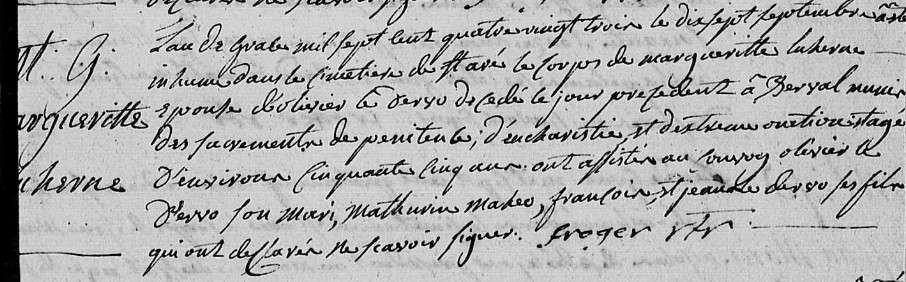 L'an de grace mil sept cent quatre vingt trois le dix sept septembre a ete
M. G.
inhumé dans le cimetiere de st avé le corps de margueritte luherne
epouse d'olivier le Dervo decedé le jour precedent á Kerval munie
margueritte
des sacrements de penitence, d'eucharistie, et d'extreme onction agee
luherne
D'environs cinquante cinq ans ont assistés au convoy olivier le
Dervo son mari, Mathurin maheo, françois, et jean le dervo ses fils
qui ont declarés ne scavoir signer. Froger